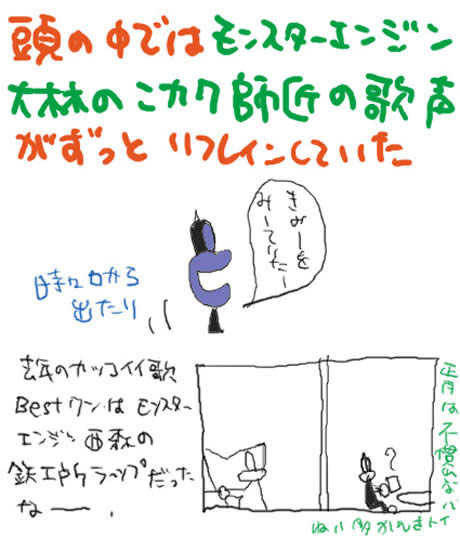 頭の中ではモンスターエンジン
大林のこカク師匠の歌声
がずっとリフレインしていた
きみーを
みーていたー
時々口から
出たり
去年のカッコイイ歌
Bestワンはモンスター
エンジン西森の
鉄工所ラップだった
なー、
?
正月は不慣れなバ